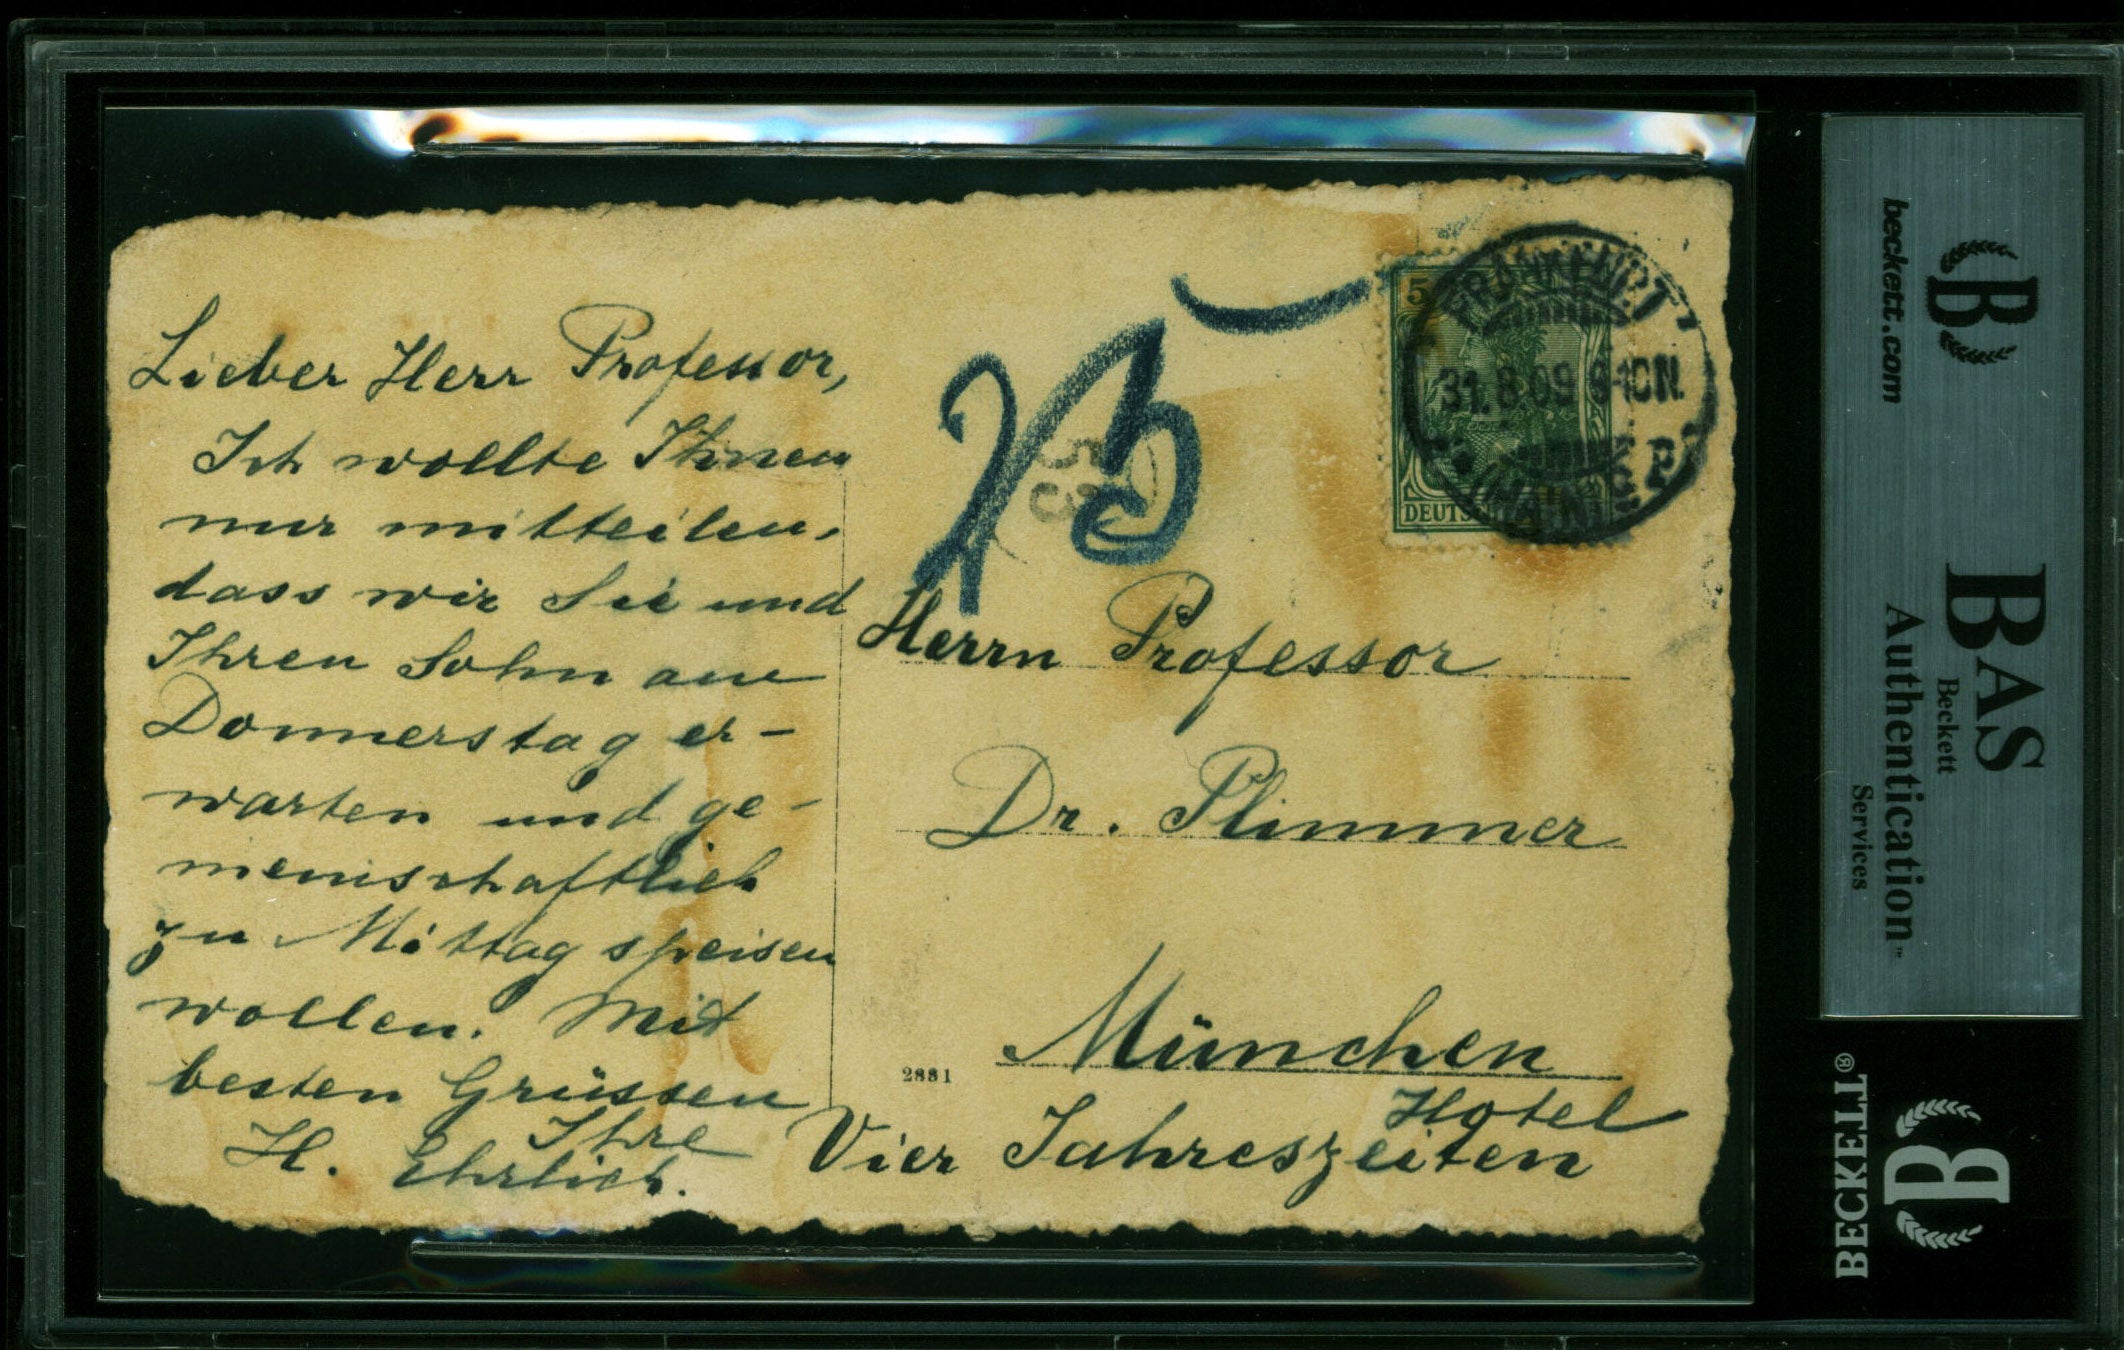 Lieber Herr Professor,
Ich wollte Ihnen
nur mitteilen,
dass wir Sie und
Ihren Sohn am
Donnerstag er-
warten und ge-
meinschaftlich
zu Mittag speisen
wollen. Mit
besten Grüssen
Ihre
H. Ehrlich.
5
FRANKFURT
31.8.09 9-10N.
(MAIN)
DEUTSCHES
Herrn Professor
Dr. Plimmer
München
Hotel
Vier Jahreszeiten
2881
beckett.com
B
BAS
Beckett
Authentication™
Services
BECKETT®
B